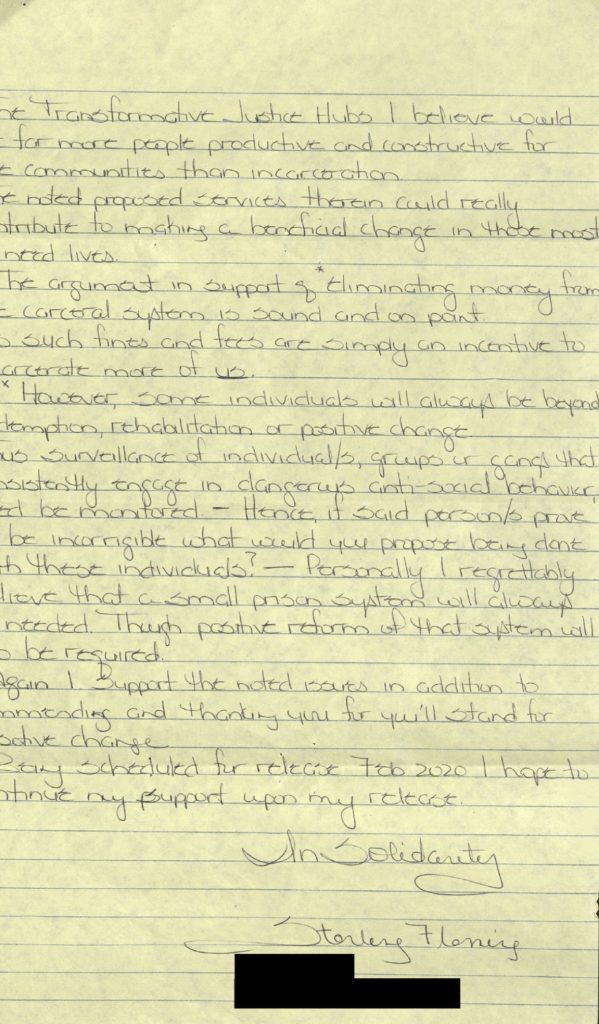 ne Transformative Justice Hubs I believe would
for more people productive and constructive for
e communities than incarceration
e noted proposed services therein could really
ntribute to making a beneficial change in those most
need lives.
The argument in support of *Eliminating money from
e carceral system is sound and on point.
o such fines and fees are simply an incentive to
arcerate more of us.
* However, some individuals will always be beyond
demption, rehabilitation or positive change
us surveillance of individual/s, groups or gangs that
nsistently engage in dangerous anti-social behavior,
ed be monitored. – Hence, if said person/s prove
be incorrigible what would you propose being done
th these individuals? — Personally I regrettably
lieve that a small prison system will always
needed. Though positive reform of that system will
o be required.
Again I support the noted issues in addition to
mmending and thanking you for you'll stand for
sitive change
Being scheduled for release Feb 2020 I hope to
ntinue my support upon my release.
In Solidarity
Sterling Fleming